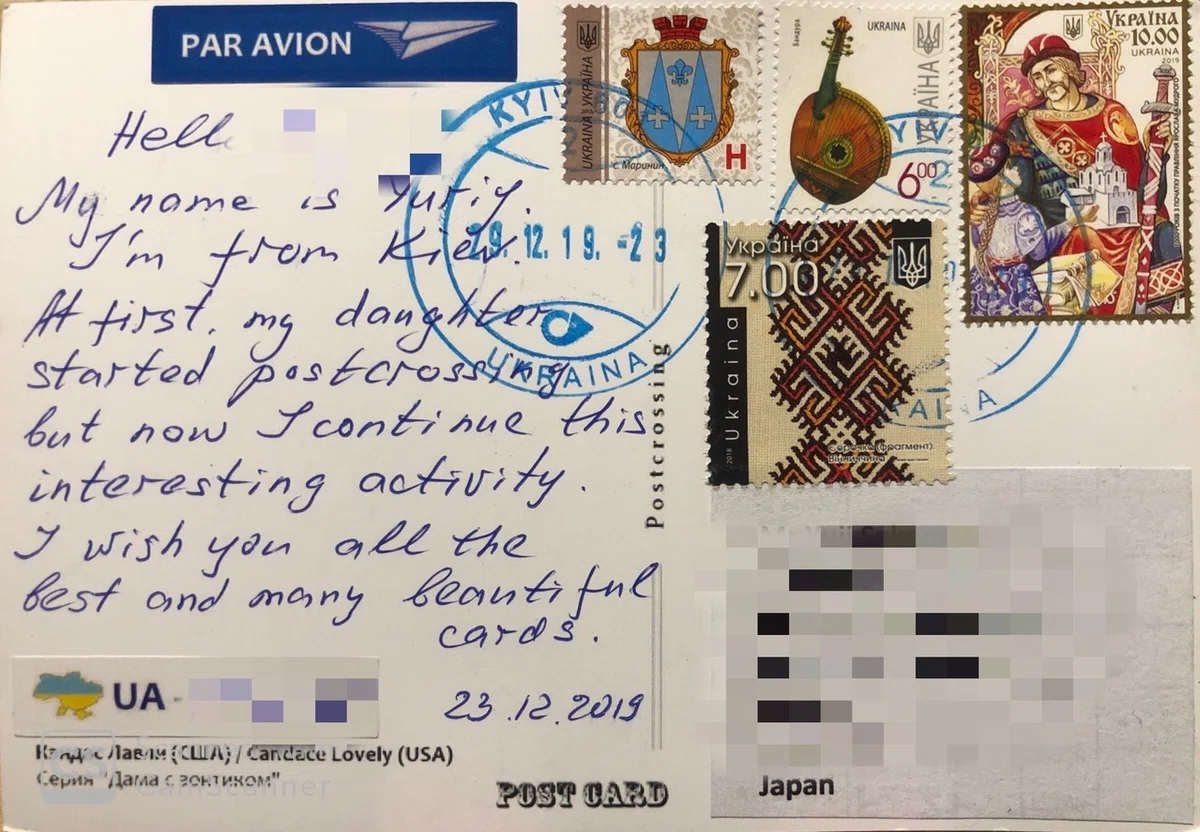 PAR AVION
UKRAINA УКРАЇНА
с. Маринин
H
Бандура
UKRAINA
УКРАЇНА
6⁰⁰
УКРАЇНА
10.00
UKRAINA
2019
KYIV
29.12.19.-23
UKRAINA
Україна
7.00
Ukraina
2018
Сорочка (фрагмент).
Вінниччина
Hello
My name is Yuriy.
I'm from Kiev.
At first, my daughter
started postcrossing
but now I continue this
interesting activity.
I wish you all the
best and many beautiful
cards.
23.12.2019
Postcrossing
UA -
Кандас Лавли (США) / Candace Lovely (USA)
Серия "Дама с зонтиком"
CamScanner
POST CARD
Japan